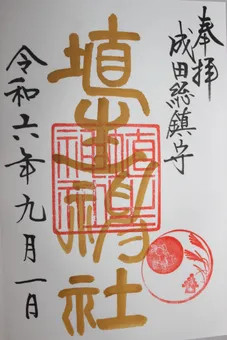 奉拝
成田総鎮守
埴生神社
令和六年九月一日